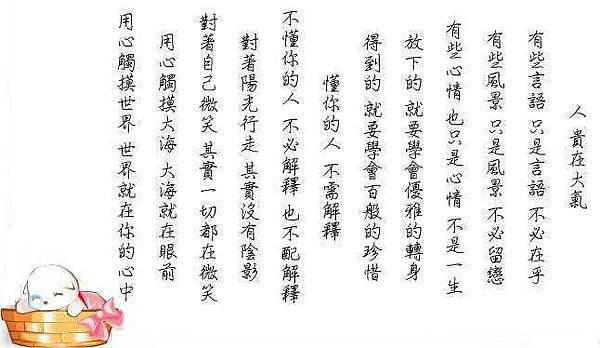 人 貴在大氣
有些言語 只是言語 不必在乎
有些風景 只是風景 不必留戀
有些心情 也只是心情 不是一生
放下的 就要學會優雅的轉身
得到的 就要學會百般的珍惜
懂你的人 不需解釋
不懂你的人 不必解釋 也不配解釋
對著陽光行走 其實沒有陰影
對著自己微笑 其實一切都在微笑
用心觸摸大海 大海就在眼前
用心觸摸世界 世界就在你的心中